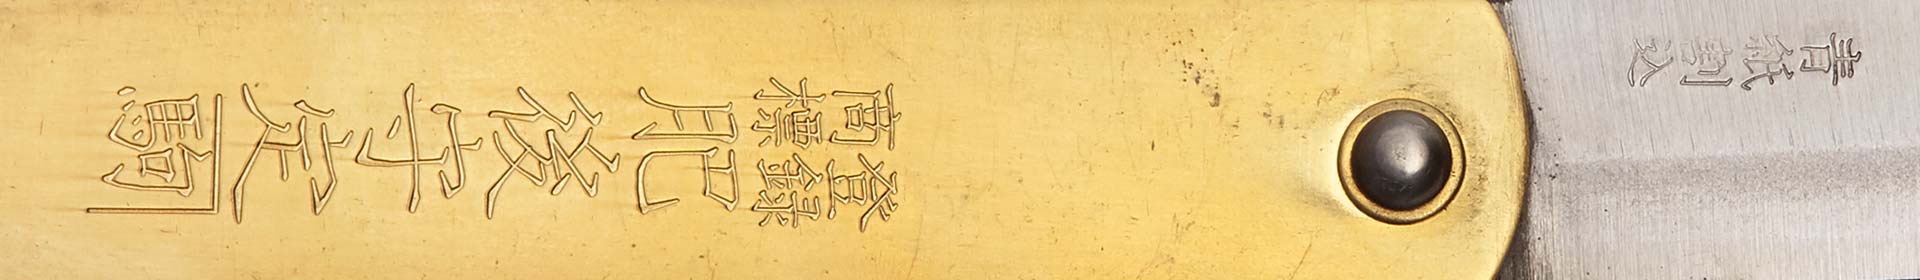 登録
商標
肥後守定駒
青紙割込